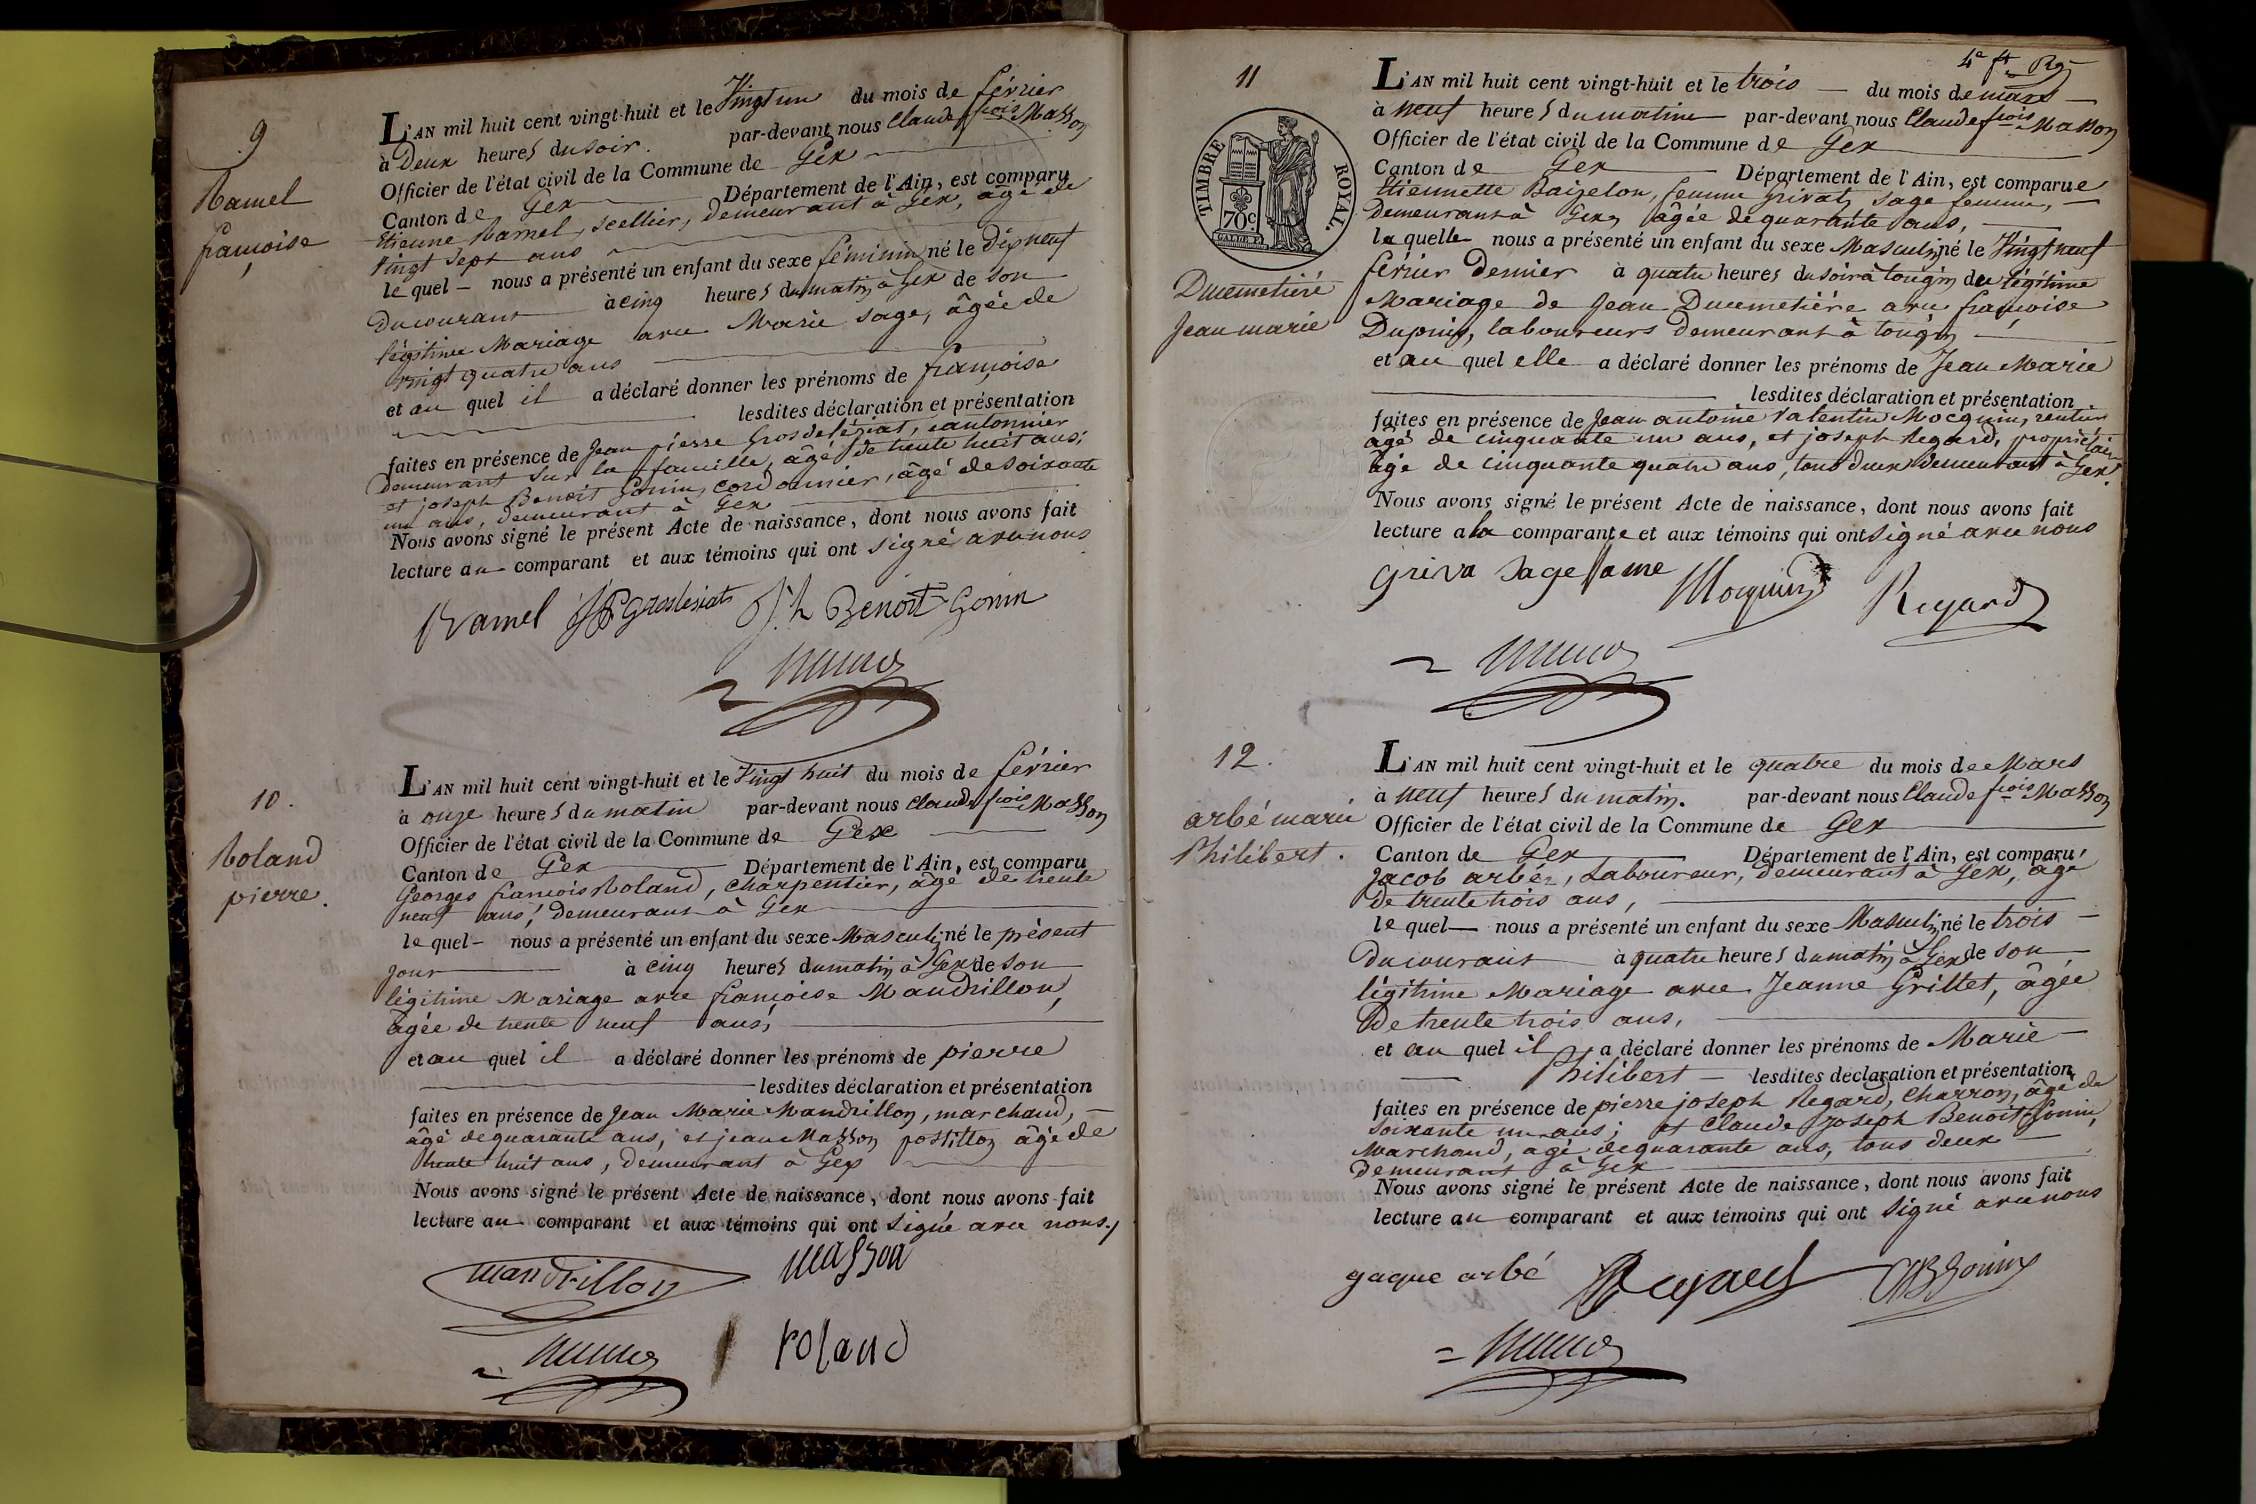 9
Ramel
françoise
L'AN mil huit cent vingt-huit et le Vingt un du mois de février
à Deux heures du soir. par-devant nous Claude fois Masson
Officier de l'état civil de la Commune de Gex
Canton de Gex Département de l'Ain, est comparu
Etienne Ramel, scellier, demeurant à Gex, âgé de
vingt sept ans
le quel nous a présenté un enfant du sexe féminin né le dixneuf
du courant à cinq heures du matin à Gex de son
légitime Mariage avec Marie Sage, âgée de
vingt quatre ans
et au quel il a déclaré donner les prénoms de françoise
lesdites déclaration et présentation
faites en présence de Jean pierre Grosdelésiat, cantonnier
demeurant sur la famille, âgé de trente huit ans;
et joseph Benoit Gonin, cordonnier, âgé de soixante
un ans, demeurant à Gex
Nous avons signé le présent Acte de naissance, dont nous avons fait
lecture au comparant et aux témoins qui ont signé avec nous
Ramel JP groslésiat Jh Benoit Gonin
10.
Roland
pierre.
L'AN mil huit cent vingt-huit et le Vingt huit du mois de février
à onze heures du matin par-devant nous Claude fois Masson
Officier de l'état civil de la Commune de Gex
Canton de Gex Département de l'Ain, est comparu
Georges françois Roland, charpentier, âgé de trente
neuf ans, demeurant à Gex
le quel nous a présenté un enfant du sexe Masculin né le présent
jour à cinq heures du matin à Gex de son
légitime Mariage avec françoise Mandrillon,
âgée de trente neuf ans,
et au quel il a déclaré donner les prénoms de pierre
lesdites déclaration et présentation
faites en présence de Jean Marie Mandrillon, marchand,
âgé de quarante ans, et jean Masson postillon âgé de
trente huit ans, demeurant à Gex
Nous avons signé le présent Acte de naissance, dont nous avons fait
lecture au comparant et aux témoins qui ont signé avec nous.
mandrillon masson
roland
4e ft
11
TIMBRE ROYAL.
70c
Ducemetiére
Jean marie
L'AN mil huit cent vingt-huit et le trois du mois de mars
à neuf heures du matin par-devant nous Claude fois Masson
Officier de l'état civil de la Commune de Gex
Canton de Gex Département de l'Ain, est comparue
Etiennette Baizelon, femme Grivat, sage femme,
Demeurant à Gex, âgée de quarante ans,
la quelle nous a présenté un enfant du sexe Masculin né le Vingt neuf
février Dernier à quatre heures du soir à tougin de légitime
Mariage de Jean Ducemetiére avec françoise
Dupuis, laboureurs demeurant à tougin
et au quel elle a déclaré donner les prénoms de Jean Marie
lesdites déclaration et présentation
faites en présence de Jean antoine Valentin Mocquin, rentier
agé de cinquante un ans, et joseph Regard, propriétaire
âgé de cinquante quatre ans, tous deux demeurant à Gex.
Nous avons signé le présent Acte de naissance, dont nous avons fait
lecture a la comparante et aux témoins qui ont signé avec nous
Griva Sage fame Mocquin Regard
12.
arbé marie
Philibert.
L'AN mil huit cent vingt-huit et le quatre du mois de Mars
à neuf heures du matin. par-devant nous Claude fois Masson
Officier de l'état civil de la Commune de Gex
Canton de Gex Département de l'Ain, est comparu,
Jacob arbé, Laboureur, demeurant à Gex, âgé
de trente trois ans,
le quel nous a présenté un enfant du sexe Masculin né le trois
du courant à quatre heures du matin à Gex de son
légitime Mariage avec Jeanne Grillet, âgée
De trente trois ans.
et au quel il a déclaré donner les prénoms de Marie
Philibert lesdites déclaration et présentation
faites en présence de pierre joseph Regard, Charron, âgé de
soixante un ans; et Claude Joseph Benoit Gonin,
Marchand, agé de quarante ans, tous deux
Demeurant à Gex
Nous avons signé le présent Acte de naissance, dont nous avons fait
lecture au comparant et aux témoins qui ont signé avec nous
gaque arbé Regard